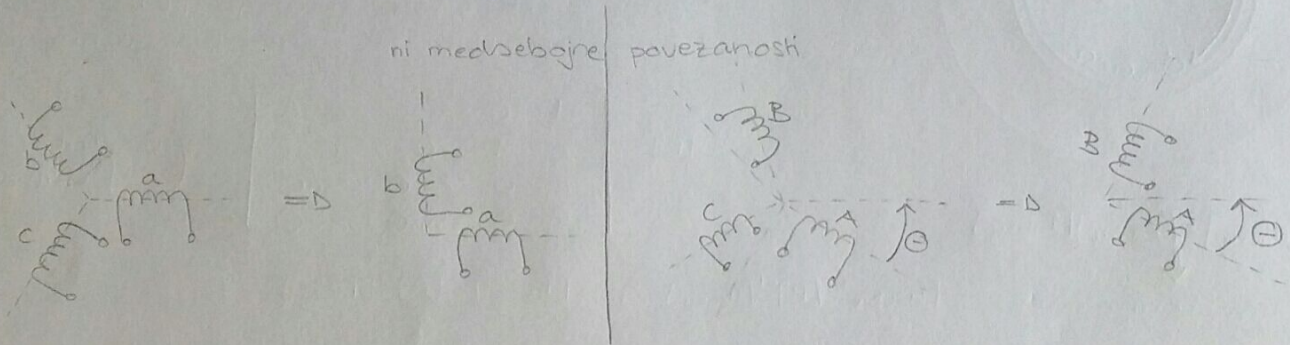 ni medsebojne povezanosti
b a c
=D
b a
B C A Θ
=D
B A Θ